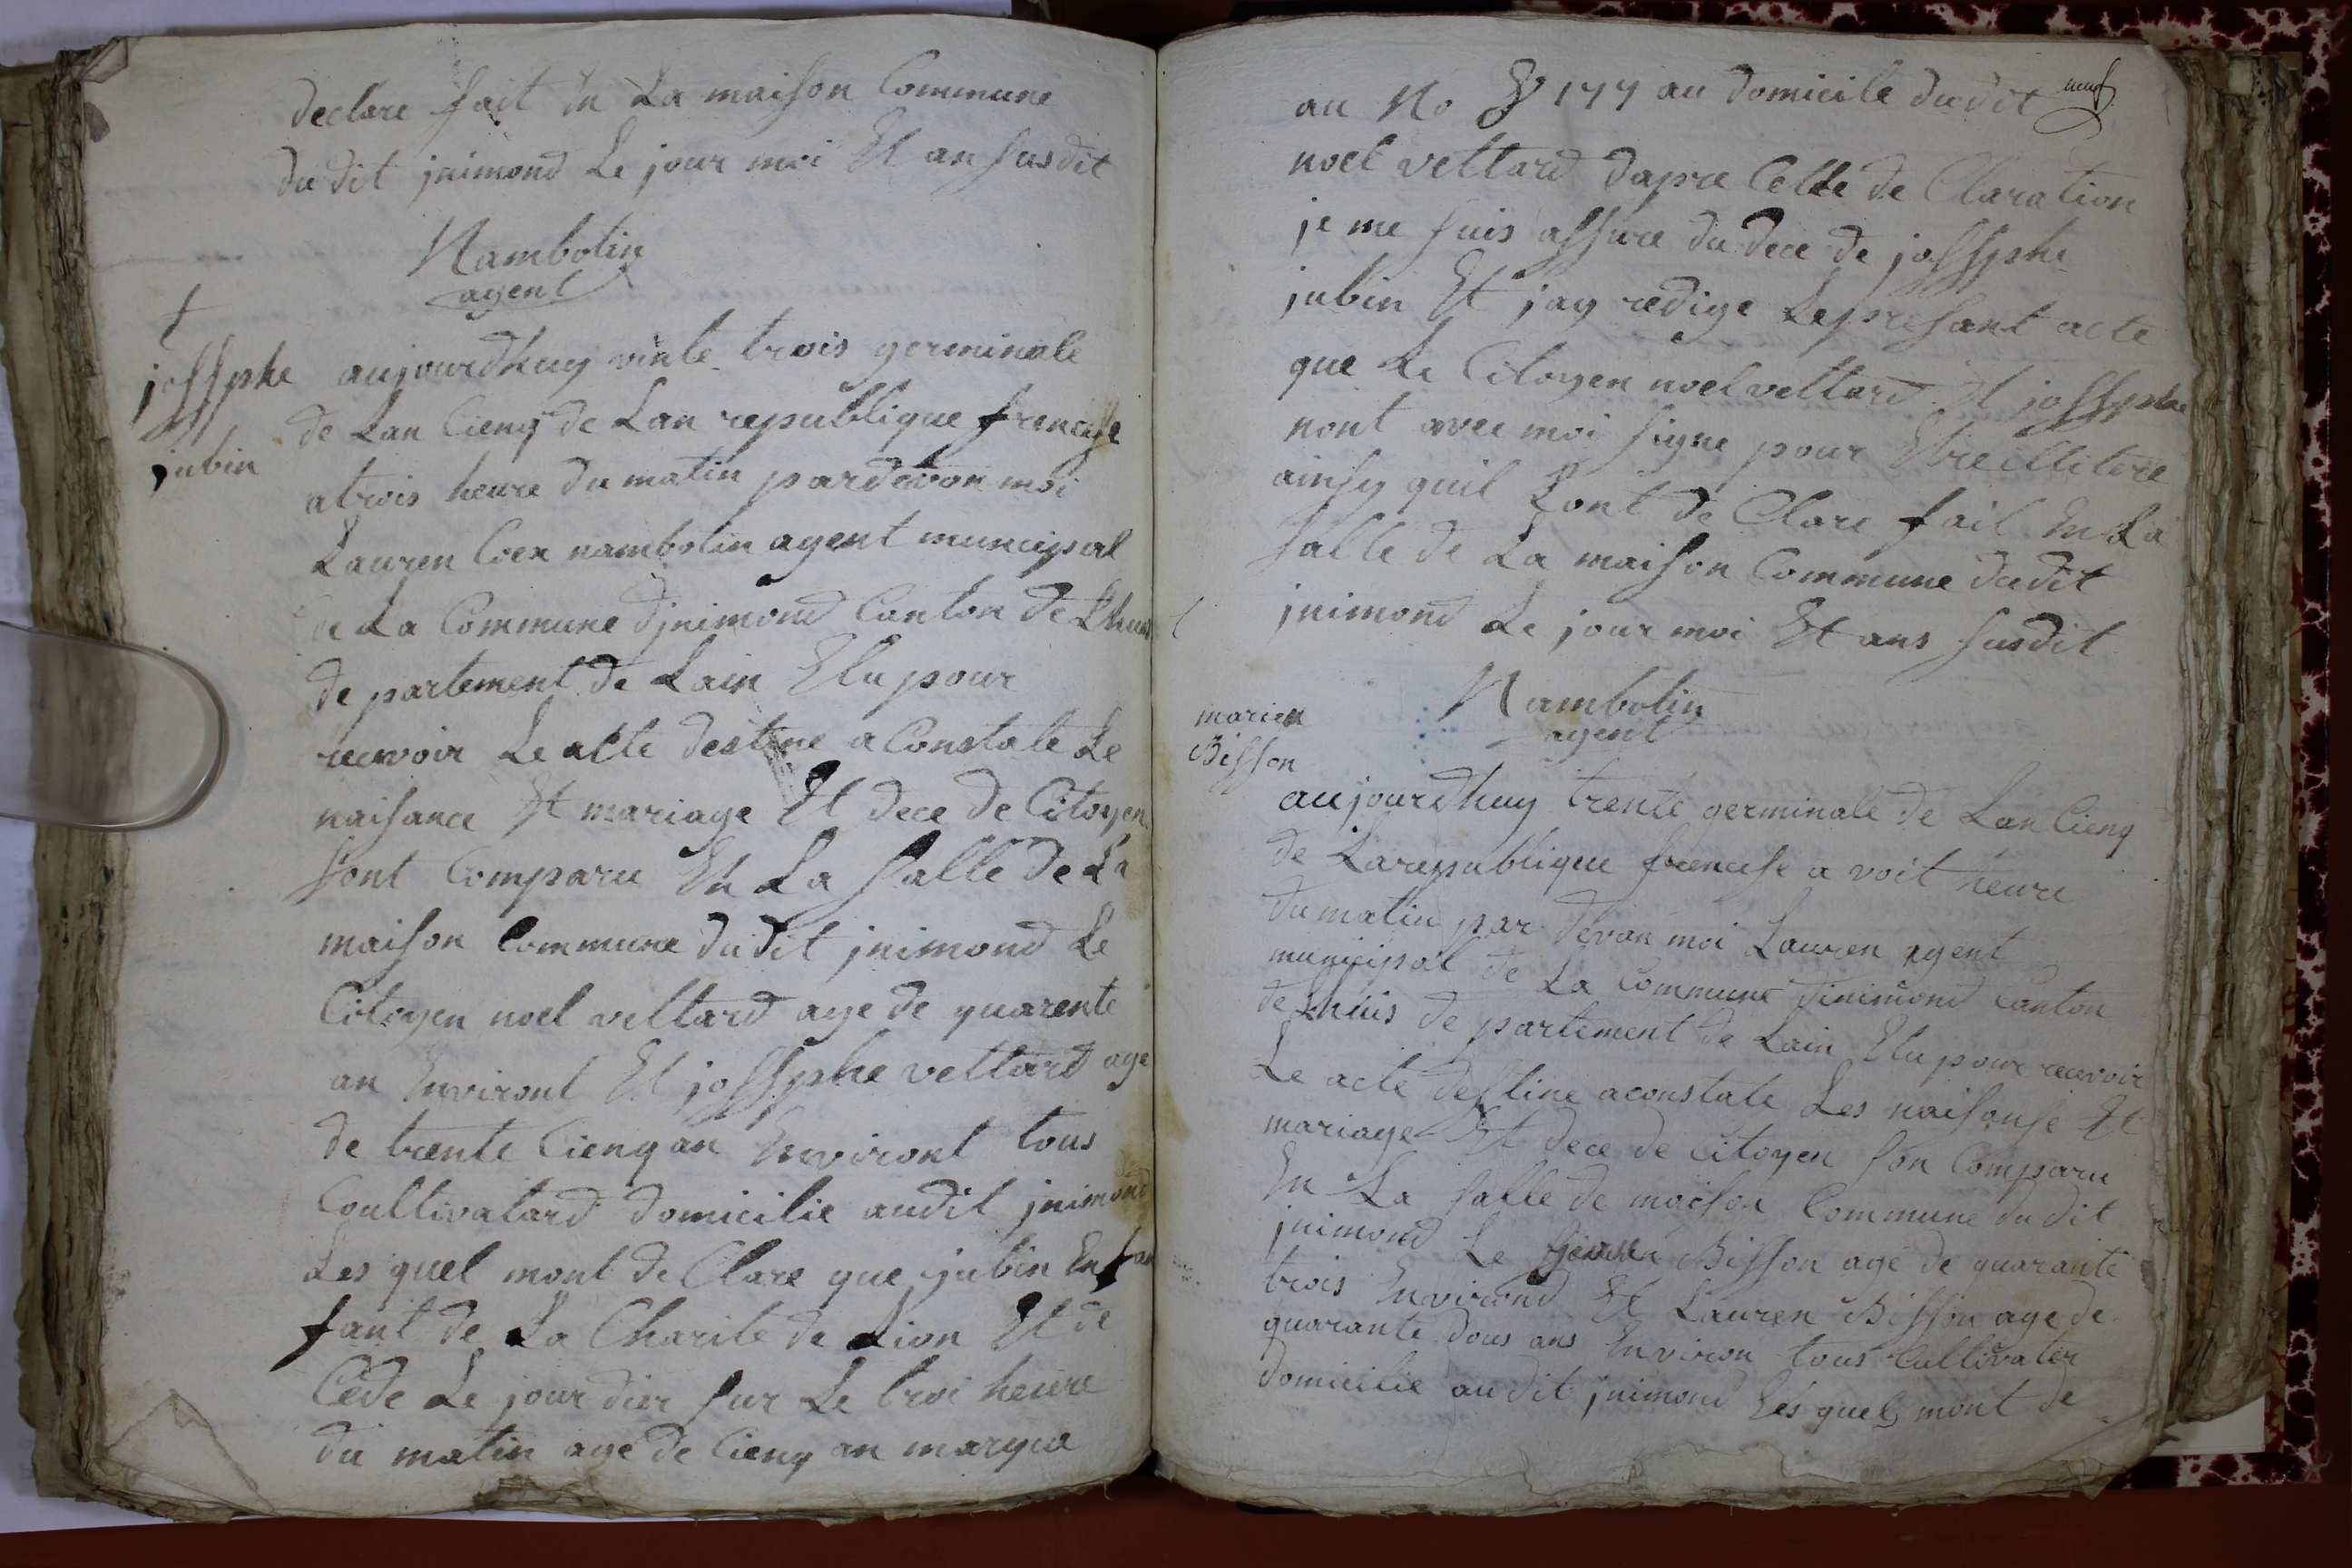 declare fait En La maison Commune
du dit jnimond Le jour moi Et an susdit
Nambotin
agent
josssphe
jubin
aujourdhuy vinte trois germinale
de Lan Cienq de Lan republique frencise
atrois heure du matin pardevon moi
Lauren Coex nambotin agent muncipal
de La Commune djnimond Canton de Lhuis
de partement de Lain Elu pour
recevoir Le alte destine a Constate Le
naisance Et mariage Et dece de Citoyen
sont Comparu En La salle de La
maison Commune du dit jnimond Le
Citoyen noel vettard age de quarente
an Environt Et josssphe vettard age
de trente Cienq an Environt tous
Coultivatard domicilie audit jnimond
Les quel mont de Clare que jubin En
fant de La Charite de Lion Et de
Cede Le jour dier sur Le troi heure
du matin age de Cienq an marque
neuf
au No 177 au domicile dudit
noel vettard dapre Cette de Claration
je me suis assure du dece de josssphe
jubin Et jay redige Le presant acte
que Le Citoyen noel vettard Et josssphe
nont avec moi signe pour Etre illitere
ainsy quil Lont de Clare fait En La
salle de La maison Commune dudit
jnimond Le jour moi Et ans susdit
Nambotin
agent
marien
Bisson
aujourdhuy trente germinale de Lan Cienq
de Larepublique frencise a voit heure
du matin par devan moi Lauren agent
municipal de La Commune djnimond Canton
de Lhuis de partement de Lain Elu pour recevoir
Le acte destine aconstate Les naisanse Et
mariage Et dece de citoyen son Comparu
En La salle de maison Commune du dit
jnimond Le Bisson age de quarante
trois Environd Et Lauren Bisson age de
quarante dous ans Environ tous Cultivater
domicilie au dit jnimond Les quel mont de